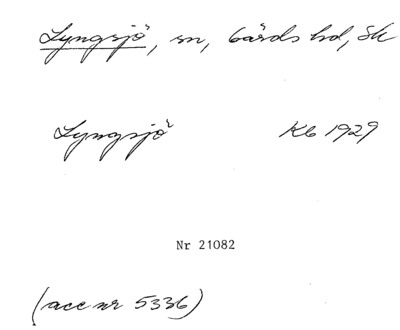 Lyngsjö, sn, Gärds hd, Sk
Lyngsjö Kb 1929
Nr 21082
(acc nr 5336)